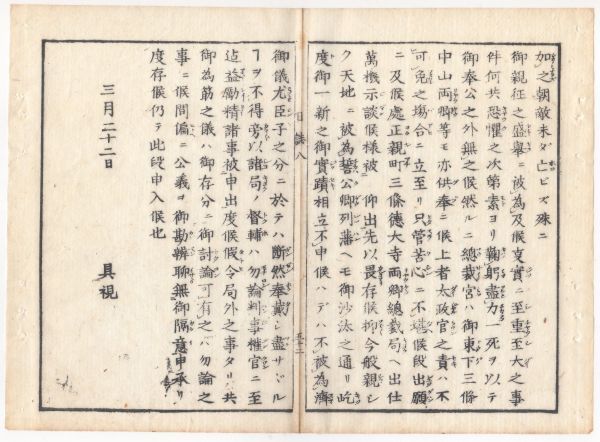 加之朝敵未ダ亡ビズ殊ニ
御親征之盛擧ニ被為及候事實ニ至重至大之事
件何共恐懼之次第素ヨリ鞠躬盡力一死ヲ以テ
御奉公之外無之候然ルニ總裁宮ハ御東下三條
中山両卿等モ亦供奉ニ候上者太政官之責ハ不
可免之場合ニ立至リ只管苦心ニ不堪候段出願
ニ及候處正親町三條德大寺両卿總裁局ヘ出仕
萬機示談候様被 仰出先以畏存候抑今般親シ
ク天地ニ被為誓公卿列藩ヘモ御沙汰之通リ屹
度御一新之御實蹟相立不申候ハデハ不被為濟
日誌八
五十二
御儀尤臣子之分ニ於テハ断然奉戴シ盡サヾル
ヿヲ不得旁以諸局ノ督輔ハ勿論判事權官ニ至
迠益勵精諸事被申出度候假令局外之事タリ共
御為筋之儀ハ御存分ニ御討論可有之ハ勿論之
事ニ候間偏ニ公義ヲ御勘辨聊無御隔意申承リ
度存候仍テ此段申入候也
三月二十二日
具視